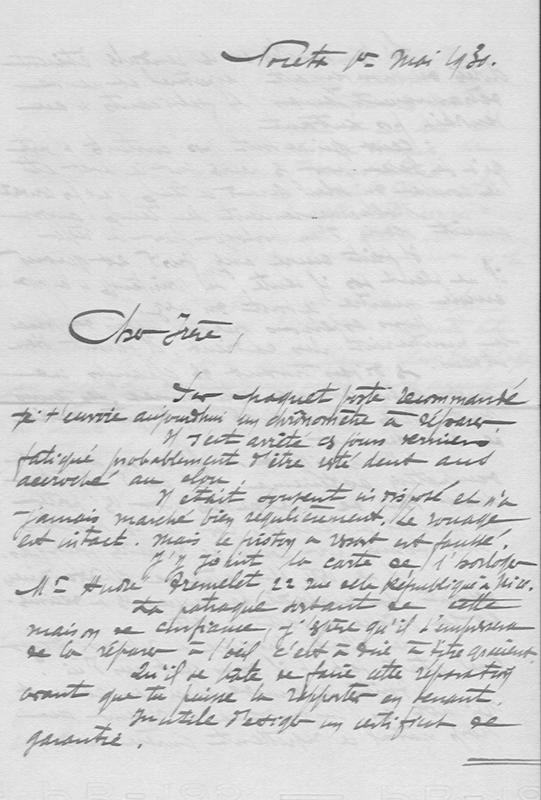 1er Mai 1930.
Cher Frère,
Par paquet poste recommandé
je t'envoie aujourdhui un chronomètre à réparer.
Il s'est arrêté ces jours derniers,
fatigué probablement d'être resté deux ans
accroché au clou.
Il était souvent indisposé et n'a
jamais marché bien régulièrement. Le rouage
est intact. mais le piston à ressort est faussé.
J'y joint la carte de l'horloger
Mr André Tremelet 22 rue de la République à Nice.
La patraque sortant de cette
maison de confiance, j'espère qu'il s'empressera
de la réparer à l'oeil c'est à dire à titre gracieux.
Qu'il se hâte de faire cette réparation
avant que tu puisse la rapporter en venant.
Inutile d'exiger un certificat de
garantie.